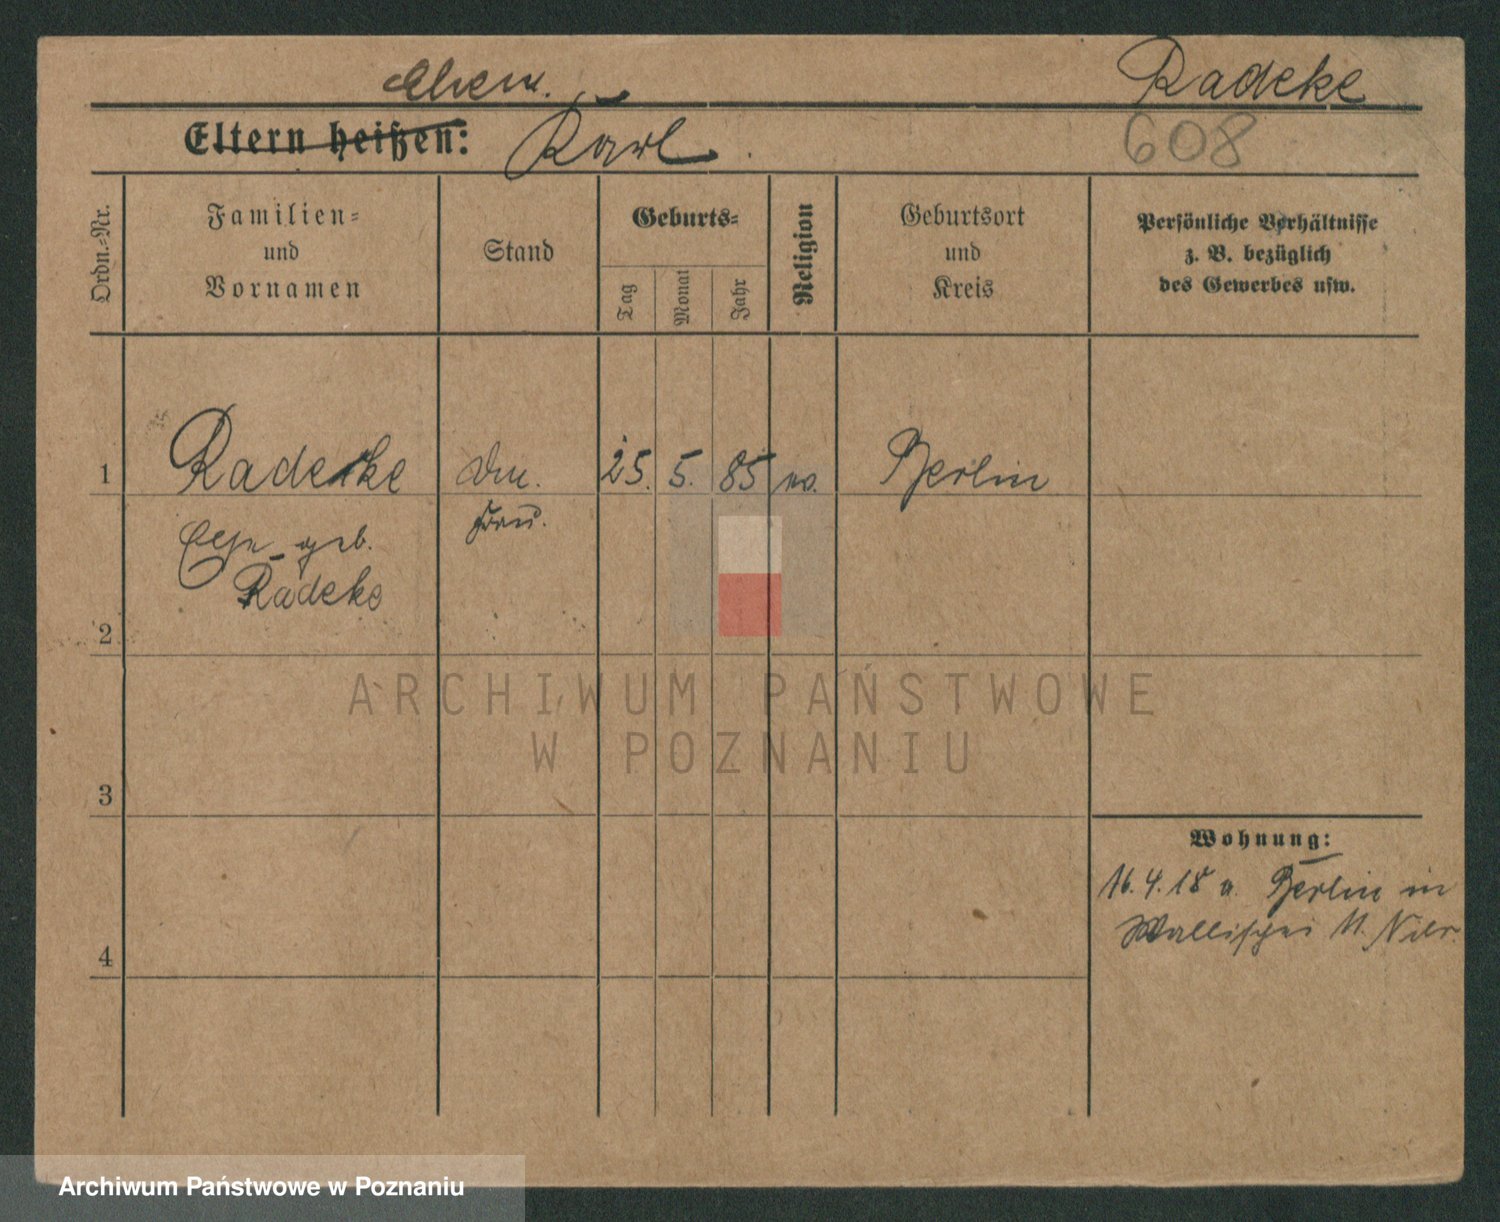 Ehem. Radeke
Eltern heißen: Karl 608
Ordn.-Nr.
Familien-
und
Vornamen
Stand
Geburts-
Tag
Monat
Jahr
Religion
Geburtsort
und
Kreis
Persönliche Verhältnisse
z. B. bezüglich
des Gewerbes usw.
1 Radecke 25. 5. 85 ev. Berlin
Frau.
Else geb.
Radeke
2
ARCHIWUM PAŃSTWOWE
W POZNANIU
3
Wohnung:
16.4.18 v. Berlin in
Wallischei 11.
4
Archiwum Państwowe w Poznaniu